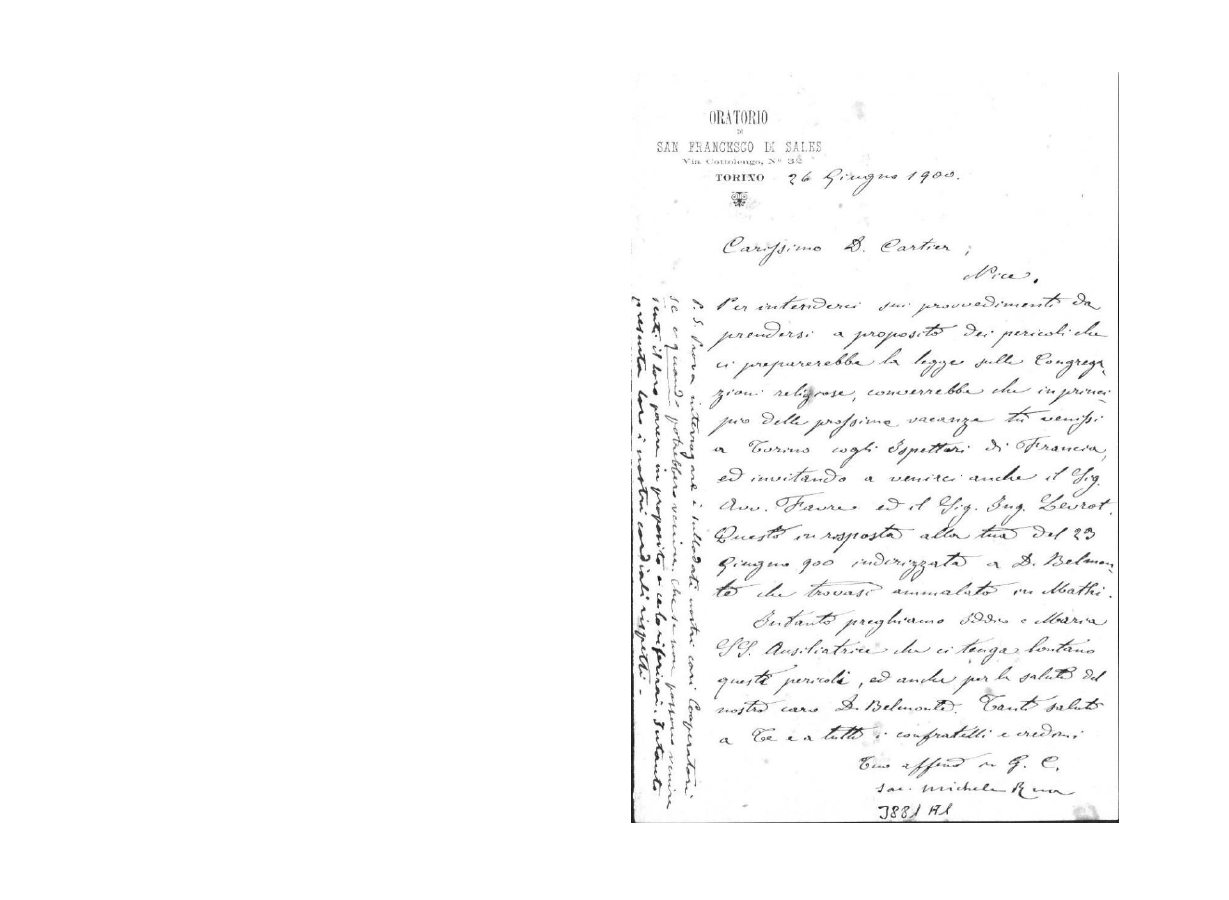 ORATORIO
DI
SAN FRANCESCO DI SALES
Via Cottolengo, N° 32
TORINO 26 Giugno 1900.
Carissimo D. Cartier;
Nice.
Per intenderci sui provvedimenti da
prendersi a proposito dei pericoli che
ci preparerebbe la legge sulle Congrega-
zioni religiose, converrebbe che in princi-
pio delle prossime vacanze tu venissi
a Torino cogli Ispettori di Francia,
ed invitando a venirci anche il Sig.
Avv. Favre ed il Sig. Ing. Levrot.
Questo in risposta alla tua del 23
Giugno 900 indirizzata a D. Belmon-
te che trovasi ammalato in Mathi.
Intanto preghiamo Iddio e Maria
SS. Ausiliatrice che ci tenga lontano
questi pericoli, ed anche per la salute del
nostro caro D. Belmonte. Tanti saluti
a Te e a tutti i confratelli e credimi
Tuo affmo in G. C.
sac. Michele Rua
3881 A1
P. S. Prova interrogare i sullodati nostri cari Cooperatori
se e quando potrebbero venire. Che se non possono venire
senti il loro parere in proposito e ce lo riferirai. Intanto
presenta loro i nostri cordiali rispetti -